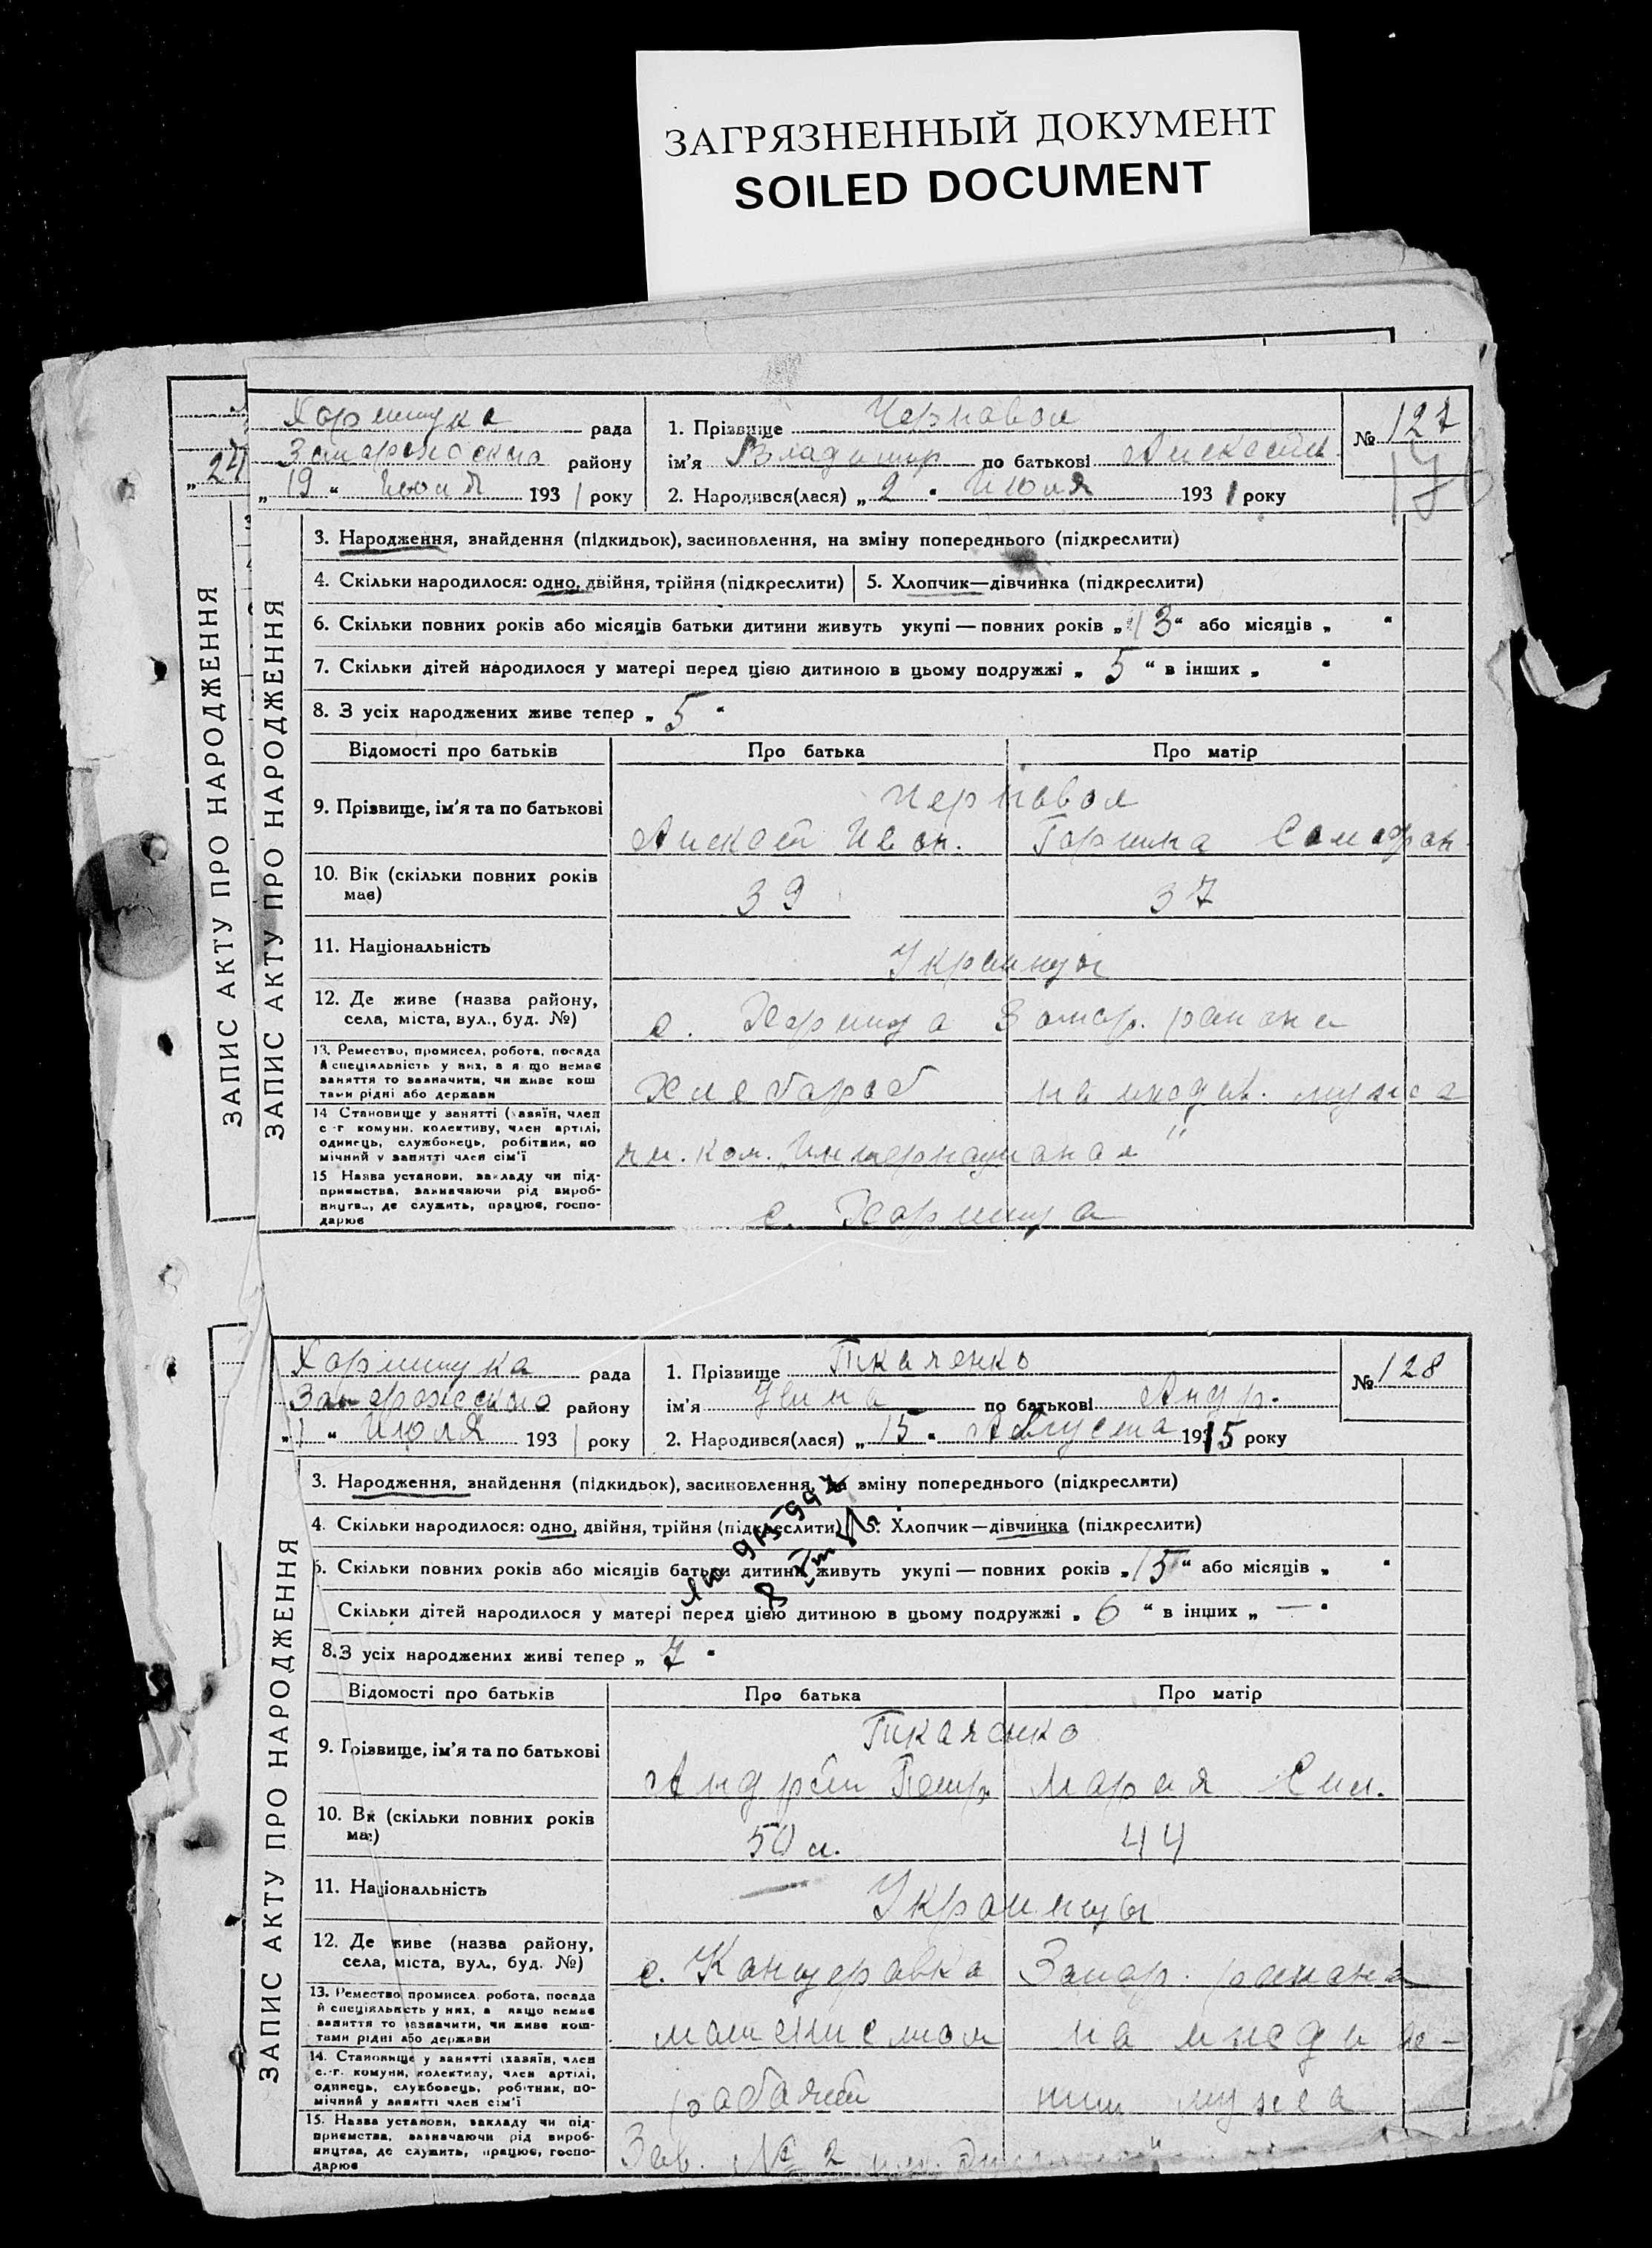 ЗАГРЯЗНЕННЫЙ ДОКУМЕНТ
SOILED DOCUMENT
„24
ЗАПИС АКТУ ПРО НАРОДЖЕННЯ
ЗАПИС АКТУ ПРО НАРОДЖЕННЯ
рада
района
„19“ 1931 року
1. Прізвище Черновол
ім'я Владимир по батькові
2. Народився(лася) „2“ Июля 1931 року
№ 127
3. Народження, знайдення (підкидьок), засиновлення, на зміну попереднього (підкреслити)
4. Скільки народилося: одно, двійня, трійня (підкреслити)
5. Хлопчик—дівчинка (підкреслити)
6. Скільки повних років або місяців батьки дитини живуть укупі — повних років „13“ або місяців „ “
7. Скільки дітей народилося у матері перед цією дитиною в цьому подружжі „5“ в інших „ “
8. З усіх народжених живе тепер „5“
Відомості про батьків
Про батька
Про матір
9. Прізвище, ім'я та по батькові
Черновол
Иван.
10. Вік (скільки повних років має)
39
37
11. Національність
Украинцы
12. Де живе (назва району,
села, міста, вул., буд. №)
с. Хортица Запор. района
13. Ремество, промисел, робота, посада
й спеціяльність у них, а я що немає
заняття то зазначити, чи живе кош
тами рідні або держави
Хлебороб
на иждив. мужа
14 Становище у занятті (хазяїн, член
с.-г комуни, колективу, член артілі,
одинець, службовець, робітник, по
мічний у занятті член сім'ї
чл. ком. „Интернационал“
15 Назва установи, закладу чи під-
приємства, зазначаючи рід вироб-
ництва, де служить, працює, госпо-
дарює
с. Хортица
ЗАПИС АКТУ ПРО НАРОДЖЕННЯ
рада
району
Июля 1931 року
1. Прізвище Ткаченко
ім'я по батькові Андр.
2. Народився(лася) „15“ Августа 1915 року
№ 128
3. Народження, знайдення (підкидьок), засиновлення, на зміну попереднього (підкреслити)
4. Скільки народилося: одно, двійня, трійня (підкреслити)
5. Хлопчик—дівчинка (підкреслити)
6. Скільки повних років або місяців батьки дитини живуть укупі — повних років „15“ або місяців „ “
Скільки дітей народилося у матері перед цією дитиною в цьому подружжі „6“ в інших „—“
8. З усіх народжених живі тепер „7“
Відомості про батьків
Про батька
Про матір
9. Прізвище, ім'я та по батькові
Ткаченко
Андрей Петр.
Мария
10. Вік (скільки повних років має)
50 л.
44
11. Національність
Украинцы
12. Де живе (назва району,
села, міста, вул., буд. №)
с. Канцеровка Запор. района
13. Ремество промисел робота, посада
й спеціяльність у них, а якщо немає
заняття то зазначити, чи живе кош-
тами рідні або держави
на иждиве-
14. Становище у занятті (хазяїн, член
с.-г. комуни, колективу, член артілі,
одинець, службовець, робітник, по-
мічний у занятті член сім'ї
рабочий
нии мужа
15. Назва установи, закладу чи під-
приємства, зазначаючи рід вироб-
ництва, де служить, працює, госпо-
дарює
Зав. № 2